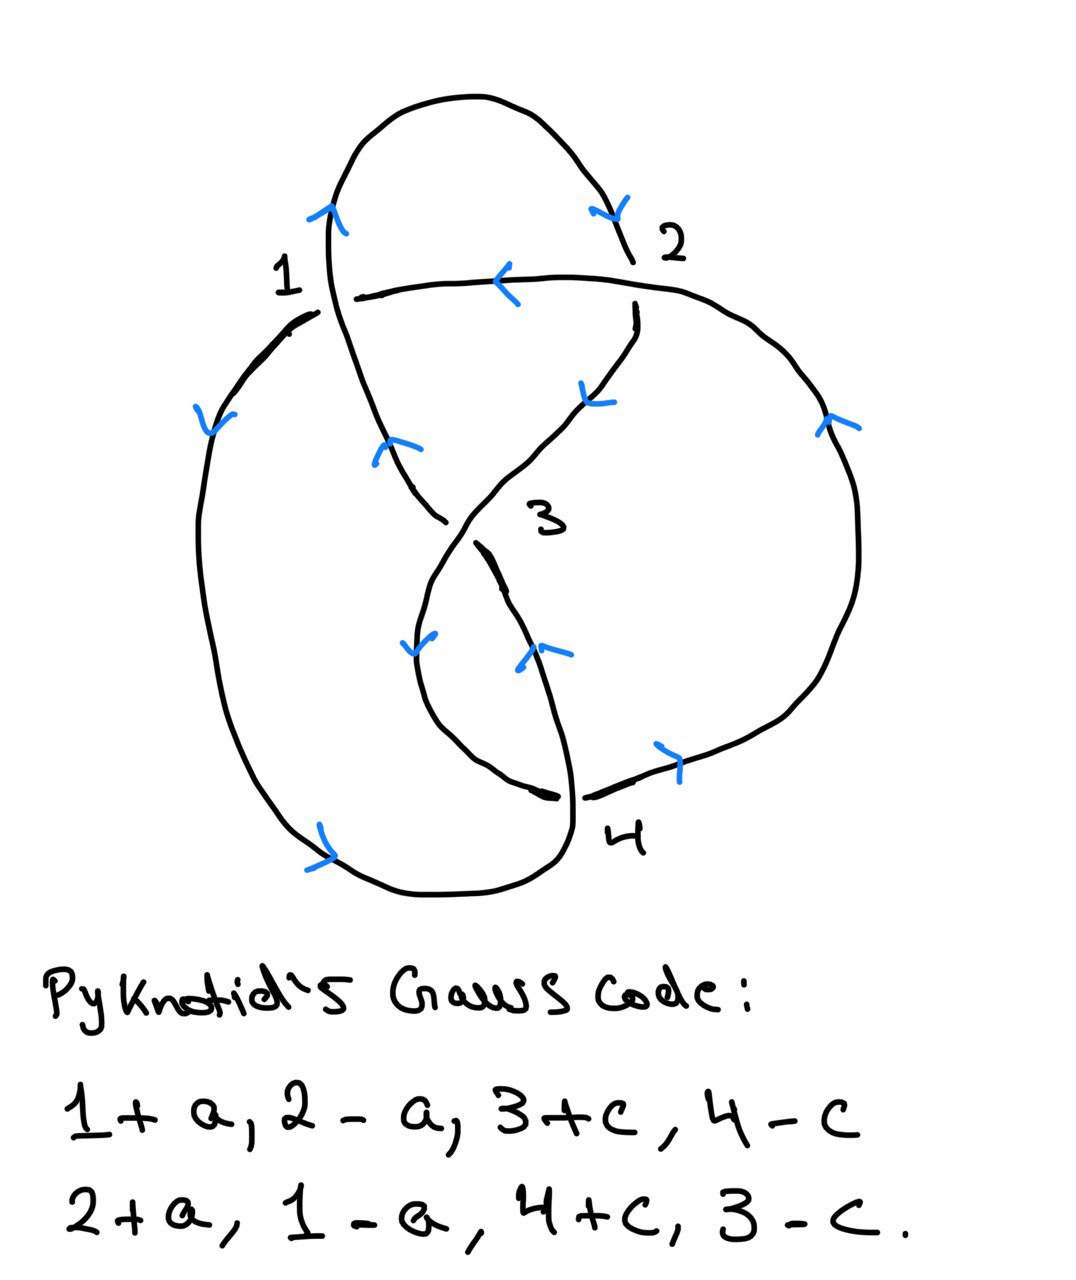 1
2
3
4
Pyknotid's Gauss code:
1+a, 2-a, 3+c, 4-c
2+a, 1-a, 4+c, 3-c.